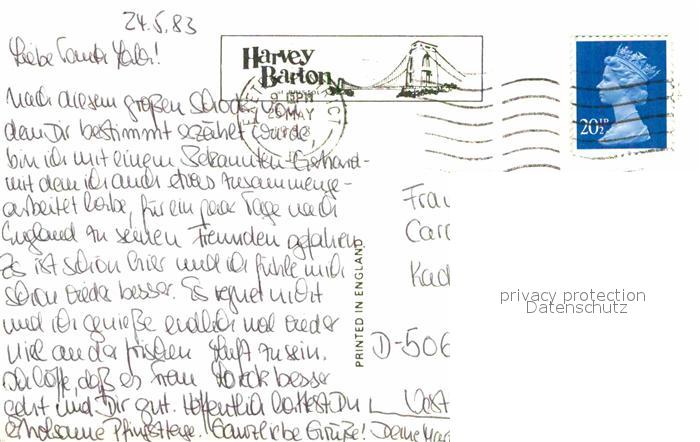 24.5.83
Liebe Tante
Harvey
Barton
of Bristol
9 15PM
MAY
20½P
Nach diesem großen Schock, von
dem Dir bestimmt erzählt wurde
bin ich mit einem Bekannten - Gerhard -
mit dem ich auch etwas zusammenge-
arbeitet habe, für ein paar Tage nach
England zu seinen Freunden gefahren.
Es ist schön hier und ich fühle mich
schon wieder besser. Es regnet nicht
und ich genieße endlich mal wieder
viel an der frischen Luft zu sein.
Ich hoffe, daß es Frau besser
geht und Dir gut. Hoffentlich hattest Du
erholsame Pfingsttage. Ganz liebe Grüße! Deine
PRINTED IN ENGLAND
Frau
Car
Kad
D-506
privacy protection
Datenschutz